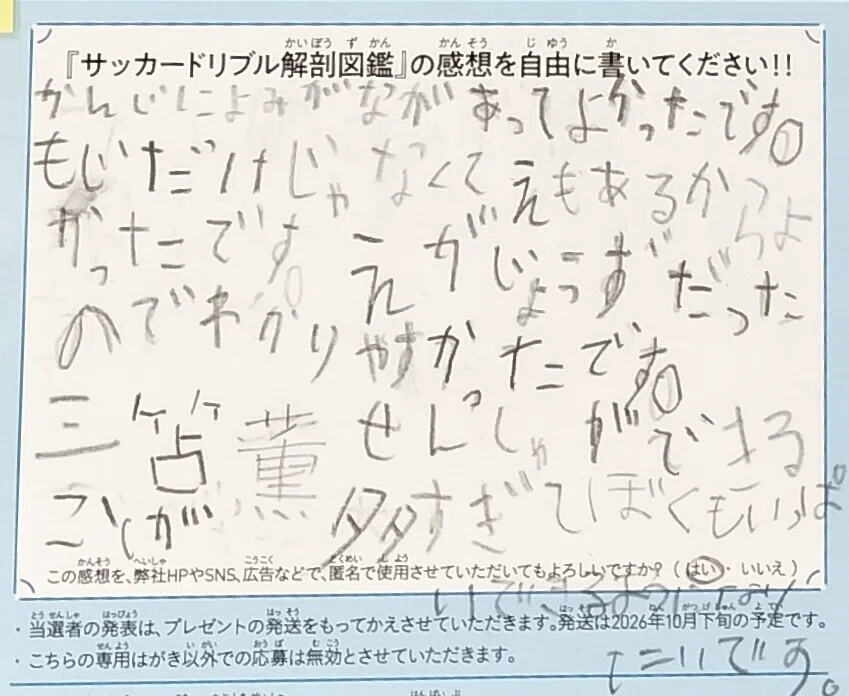 『サッカードリブル解剖図鑑』の感想を自由に書いてください!!
かんじによみがながあってよかったです。
もじだけじゃなくてえもあるからよ
かったです。えがじょうずだった
のでわかりやすかったです。
三笘薫せんしゅができる
こが多すぎてぼくもいっぱ
いできるようになり
たいです。
この感想を、弊社HPやSNS、広告などで、匿名で使用させていただいてもよろしいですか?(はい・いいえ)
・当選者の発表は、プレゼントの発送をもってかえさせていただきます。発送は2026年10月下旬の予定です。
・こちらの専用はがき以外での応募は無効とさせていただきます。